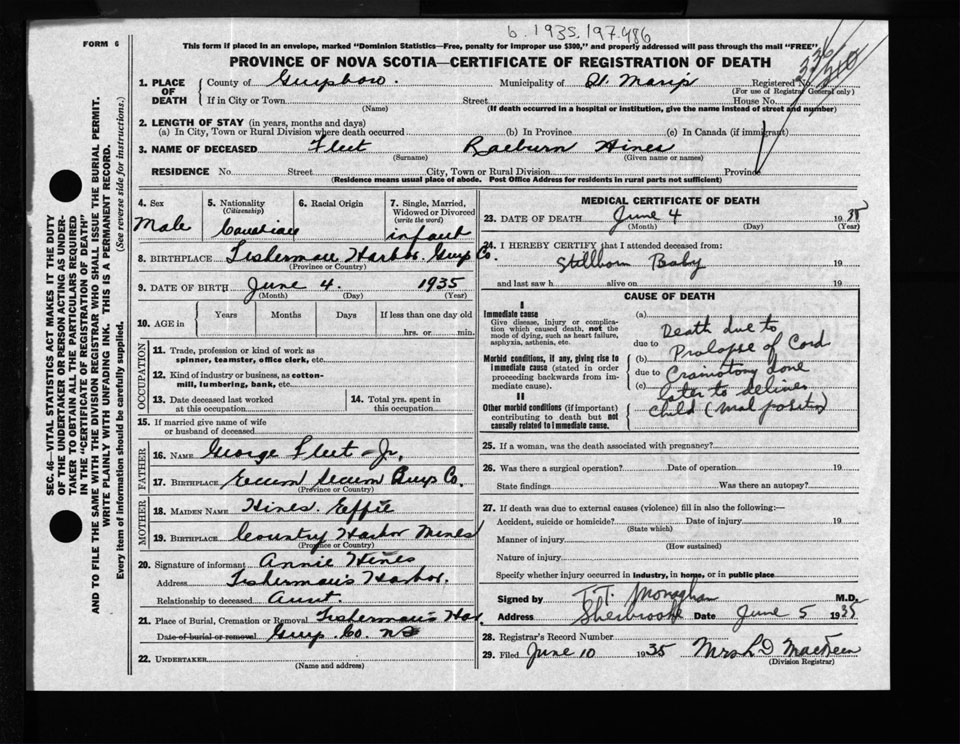 b. 1935.197.486
FORM 6
This form if placed in an envelope, marked "Dominion Statistics—Free, penalty for improper use $300," and properly addressed will pass through the mail "FREE"
PROVINCE OF NOVA SCOTIA—CERTIFICATE OF REGISTRATION OF DEATH
1. PLACE OF DEATH
County of Guysboro. Municipality of St Marys Registered No.
(For use of Registrar General only)
If in City or Town Street House No.
(Name) (If death occurred in a hospital or institution, give the name instead of street and number)
2. LENGTH OF STAY (in years, months and days)
(a) In City, Town or Rural Division where death occurred (b) In Province (c) In Canada (if immigrant)
3. NAME OF DECEASED Fleet Raeburn Hines
(Surname) (Given name or names)
RESIDENCE No. Street City, Town or Rural Division Province
(Residence means usual place of abode. Post Office Address for residents in rural parts not sufficient)
4. Sex
Male
5. Nationality
(Citizenship)
6. Racial Origin
7. Single, Married, Widowed or Divorced
(write the word)
infant
8. BIRTHPLACE Fishermans Harbor. Guys Co.
(Province or Country)
9. DATE OF BIRTH June 4. 1935
(Month) (Day) (Year)
10. AGE in
Years Months Days If less than one day old
hrs. or min.
OCCUPATION
11. Trade, profession or kind of work as spinner, teamster, office clerk, etc.
12. Kind of industry or business, as cotton-mill, lumbering, bank, etc.
13. Date deceased last worked at this occupation
14. Total yrs. spent in this occupation
15. If married give name of wife or husband of deceased
FATHER
16. NAME George Fleet Jr.
17. BIRTHPLACE Ecum Secum Guys Co.
(Province or Country)
MOTHER
18. MAIDEN NAME Hines. Effie
19. BIRTHPLACE Country Harbor Mines
(Province or Country)
20. Signature of informant Annie Hines
Address Fisherman's Harbor.
Relationship to deceased Aunt.
21. Place of Burial, Cremation or Removal Fisherman's Har.
Date of burial or removal Guys. Co. NS
22. UNDERTAKER
(Name and address)
MEDICAL CERTIFICATE OF DEATH
23. DATE OF DEATH June 4 19
(Month) (Day) (Year)
24. I HEREBY CERTIFY that I attended deceased from:
Stillborn Baby 19
and last saw h alive on 19
CAUSE OF DEATH
I
Immediate cause
Give disease, injury or complication which caused death, not the mode of dying, such as heart failure, asphyxia, asthenia, etc.
Morbid conditions, if any, giving rise to immediate cause (stated in order proceeding backwards from immediate cause).
II
Other morbid conditions (if important) contributing to death but not causally related to immediate cause.
(a)
Death due to
due to
Prolapse of Cord
(b)
due to Craniotomy done
(c) later to deliver
child
25. If a woman, was the death associated with pregnancy?
26. Was there a surgical operation? Date of operation 19
State findings Was there an autopsy?
27. If death was due to external causes (violence) fill in also the following:—
Accident, suicide or homicide? Date of injury 19
(State which)
Manner of injury
(How sustained)
Nature of injury
Specify whether injury occurred in industry, in home, or in public place
Signed by T.T. Monaghan M.D.
Address Sherbrooke Date June 5 1935
28. Registrar's Record Number
29. Filed June 10 1935 Mrs L D MacKeen
(Division Registrar)
SEC. 46—VITAL STATISTICS ACT MAKES IT THE DUTY
OF THE UNDERTAKER OR PERSON ACTING AS UNDERTAKER
TO OBTAIN ALL THE PARTICULARS REQUIRED
IN THE "CERTIFICATE OF REGISTRATION OF DEATH"
AND TO FILE THE SAME WITH THE DIVISION REGISTRAR WHO SHALL ISSUE THE BURIAL PERMIT.
WRITE PLAINLY WITH UNFADING INK. THIS IS A PERMANENT RECORD.
Every item of information should be carefully supplied. (See reverse side for instructions.)